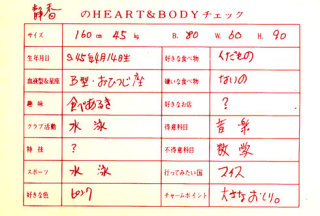 静香 のHEART&BODYチェック
サイズ 160cm 45kg B. 80 W. 60 H. 90
生年月日 S.45年4月14日生 好きな食べ物 くだもの
血液型&星座 B型・おひつじ座 嫌いな食べ物 ないの
趣味 食べあるき 好きなお店 ?
クラブ活動 水泳 得意科目 音楽
特技 ? 不得意科目 数学
スポーツ 水泳 行ってみたい国 スイス
好きな色 ピンク チャームポイント 大きなおしり。